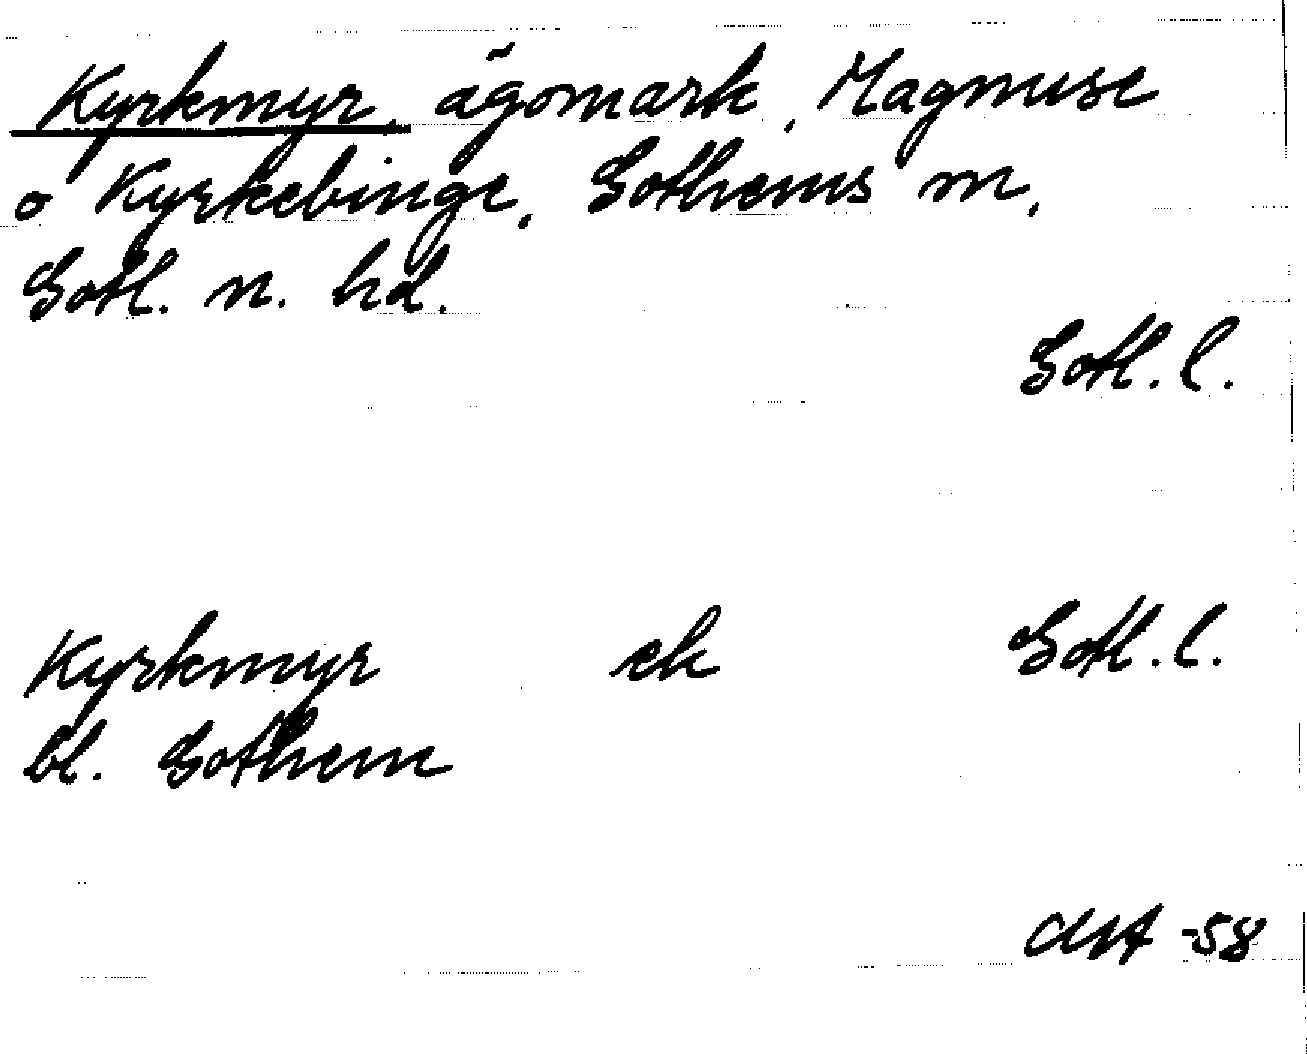 Kyrkmyr, ägomark, Magnuse
o Kyrkebinge, Gothems m,
Gotl. n. hd.
Gotl. l.
Kyrkmyr ek Gotl. l.
bl. Gothem
-58